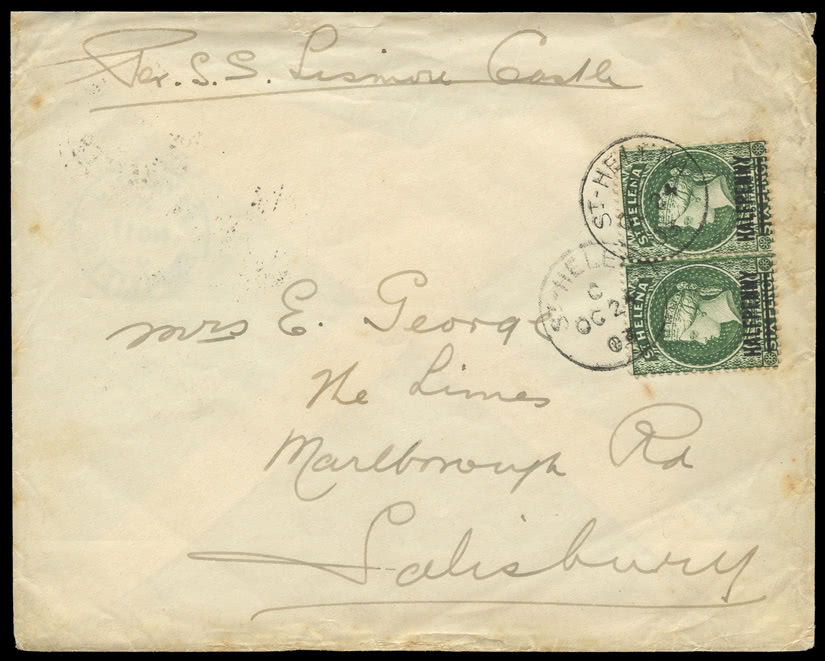 Per. S. S. Lismore Castle
ST-HELENA
ST HELENA
HALFPENNY
SIX PENCE
ST-HELE
C
OC 2
ST HELENA
HALFPENNY
SIX PENCE
Mrs E. George
The Limes
Marlborough Rd
Salisbury